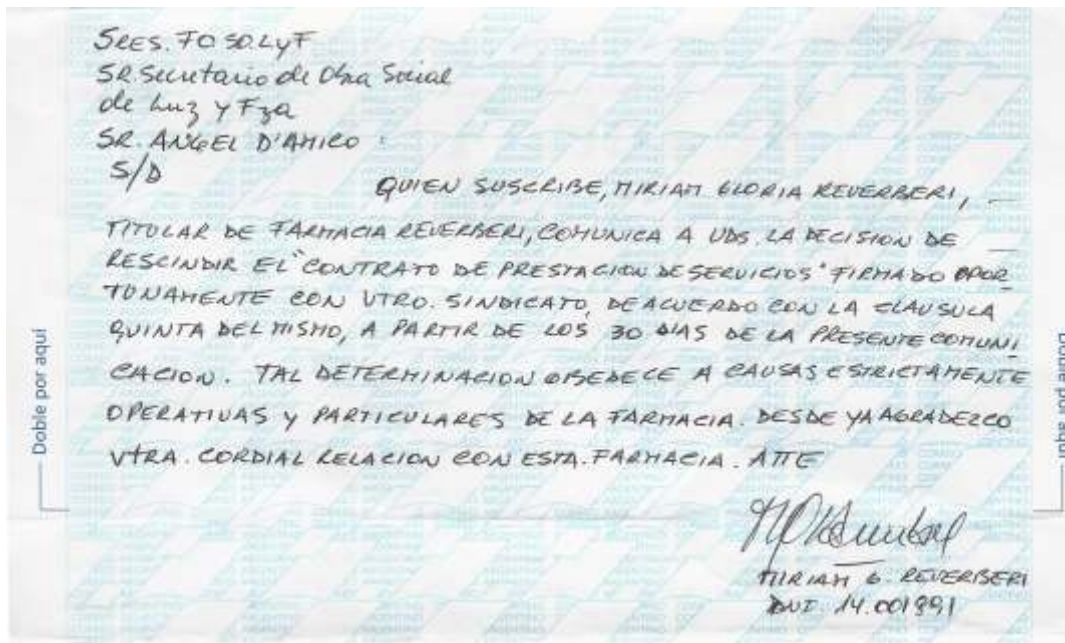 SRES. FOSO.LyF
SR. Secretario de Obra Social
de Luz y Fza
SR. ANGEL D'AMICO :
S/D
QUIEN SUSCRIBE, MIRIAM GLORIA REVERBERI,
TITULAR DE FARMACIA REVERBERI, COMUNICA A UDS. LA DECISION DE
RESCINDIR EL "CONTRATO DE PRESTACION DE SERVICIOS" FIRMADO OPOR
TUNAMENTE CON VTRO. SINDICATO, DE ACUERDO CON LA CLAUSULA
QUINTA DEL MISMO, A PARTIR DE LOS 30 DIAS DE LA PRESENTE COMUNI
CACION. TAL DETERMINACION OBEDECE A CAUSAS ESTRICTAMENTE
OPERATIVAS Y PARTICULARES DE LA FARMACIA. DESDE YA AGRADEZCO
VTRA. CORDIAL RELACION CON ESTA FARMACIA. ATTE
MIRIAM G. REVERBERI
DNI. 14.001991
Doble por aquí
Doble por aquí